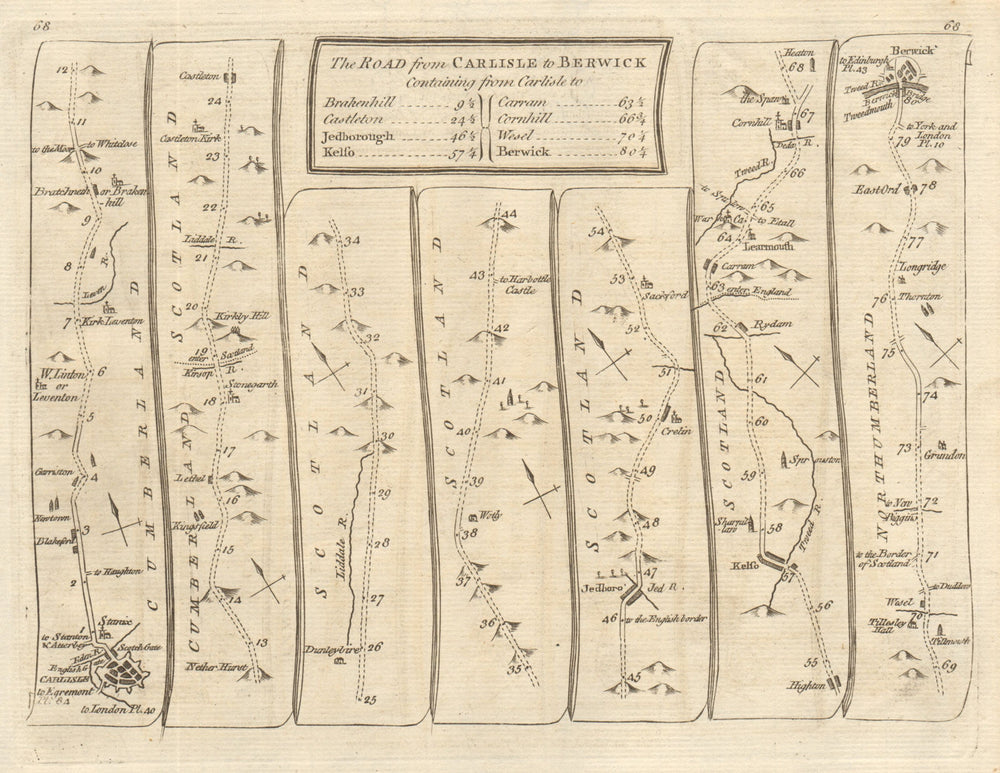 68
68
The ROAD from CARLISLE to BERWICK
Containing from Carlisle to
Brakenhill 9½
Castleton 24½
Jedborough 46½
Kelso 57¼
Carram 63¼
Cornhill 66¾
Wesel 70¼
Berwick 80¼
12
11
to the Moor
to Whitclose
10
Bratchneth
or Braken
hill
9
8
Leven R.
7
Kirk Leventon
W. Linton
or
Leventon
6
5
Garriston
4
Newtown
3
Blakeford
2
to Haughton
CUMBERLAND
1
Stanix
to Stanton
& Atterbey
Scotch Gate
Eden R.
English G
ate
CARLISLE
to Egremont
Pl. 84
to London Pl. 40
Castleton
24
Castleton Kirk
23
22
Liddale R.
21
20
Kirkby Hill
SCOTLAND
19
enter Scotland
Kirsop R.
Stonegarth
18
17
Lethel
16
Kingsfield
15
CUMBERLAND
14
13
Nether Hurst
34
33
32
31
30
29
SCOTLAND
28
Liddale R.
27
Dunleybire
26
25
44
43
to Harbottle
Castle
42
41
40
SCOTLAND
39
Wolly
38
37
36
35
54
53
Sackford
52
51
50
Crelin
49
SCOTLAND
48
47
Jedboro'
Jed R.
46
to the English border
45
Heaton
68
the Spaw
67
Cornhill
Dedo R.
66
Tweed R.
65
to
War
Ca
to Etall
64
Learmouth
Carram
63
enter England
62
Rydam
61
60
SCOTLAND
Sprouston
59
58
Kelso
57
Tweed R.
56
55
Highton
Berwick
to Edinburgh
Pl. 43
Tweed R.
Berwick Bridge
80
Tweedmouth
to York and
London
Pl. 10
79
East Ord
78
77
Longridge
76
Thornton
75
74
NORTHUMBERLAND
73
Grundon
72
to New
Biggins
71
to the Border
of Scotland
to Dudlow
Wesel
70
Tillesley
Hall
Tillmouth
69